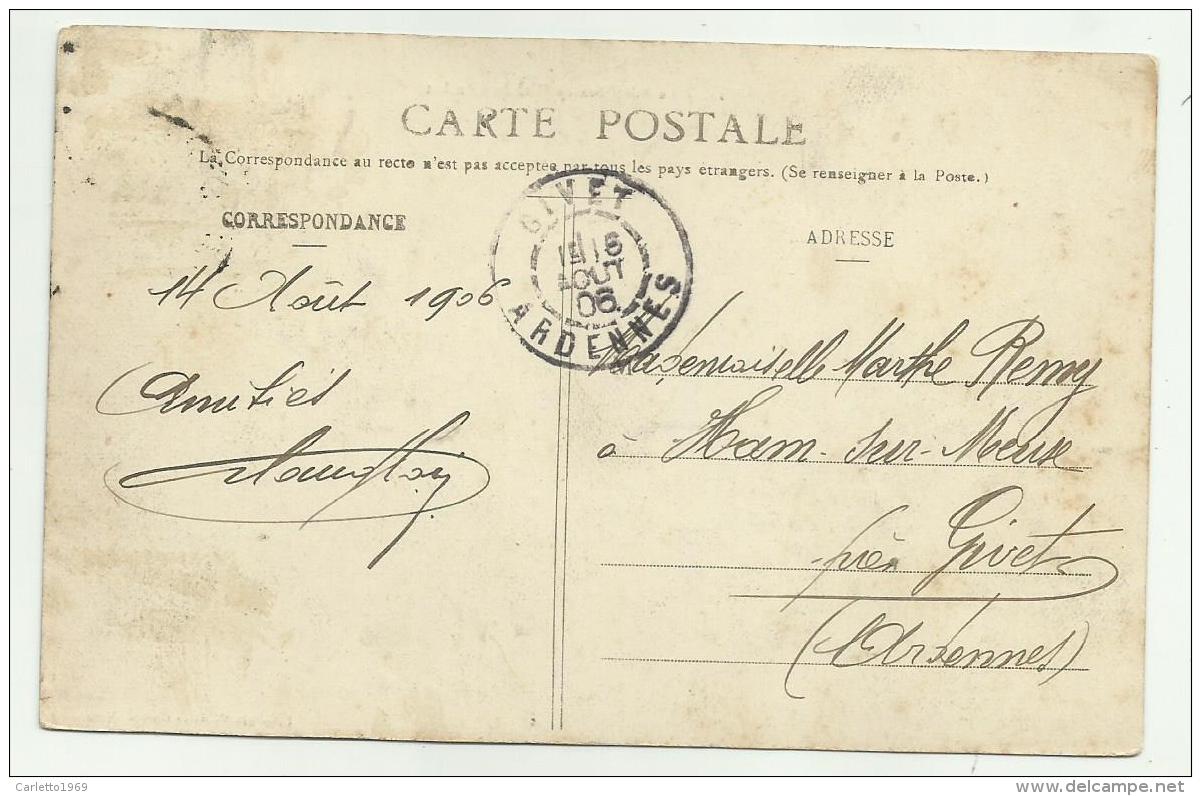 CARTE POSTALE
La Correspondance au recto n'est pas acceptee par tous les pays etrangers. (Se renseigner à la Poste.)
CORRESPONDANCE
ADRESSE
GIVET
16
AOUT
06
ARDENNES
14 Août 1906
Amitiés
Mademoiselle Marthe Remy
à Ham-sur-Meuse
près Givet
(Ardennes)
Carletto1969
delcampe.net